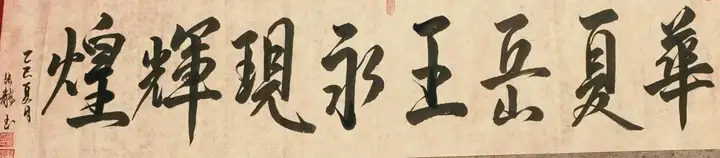 華夏岳王永現輝煌
乙巳夏月